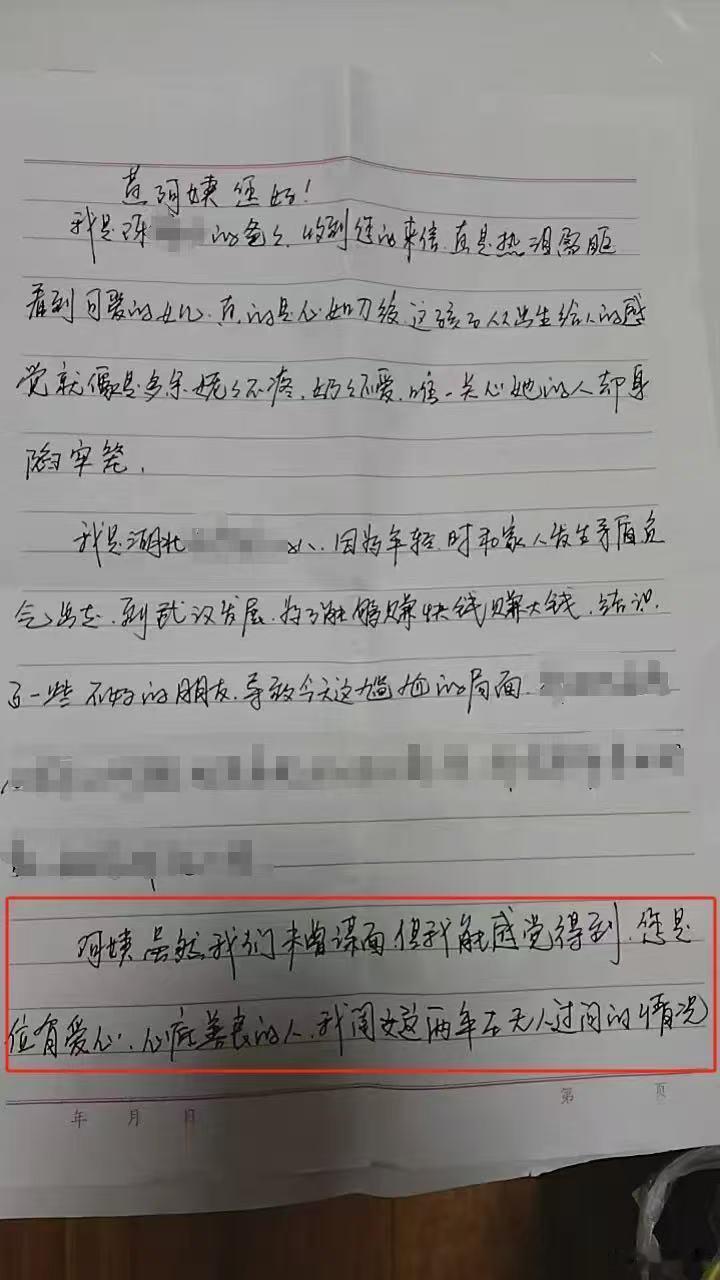 黄阿姨您好！
我是陈 的爸爸，收到您的来信，真是热泪盈眶
看到可爱的女儿，真的是心如刀绞，这孩子从出生给人的感
觉就像是多余，妈妈不疼，奶奶不爱，唯一关心她的人却身
陷牢笼，
我是湖北 人，因为年轻时和家人发生矛盾负
气出走，到武汉发展，为了能够赚快钱赚大钱，结识
了一些不好的朋友，导致今天这尴尬的局面，
阿姨虽然我们未曾谋面，但我能感觉得到，您是
位有爱心，心底善良的人，我闺女这两年在无人过问的情况
年 月 日 第 页